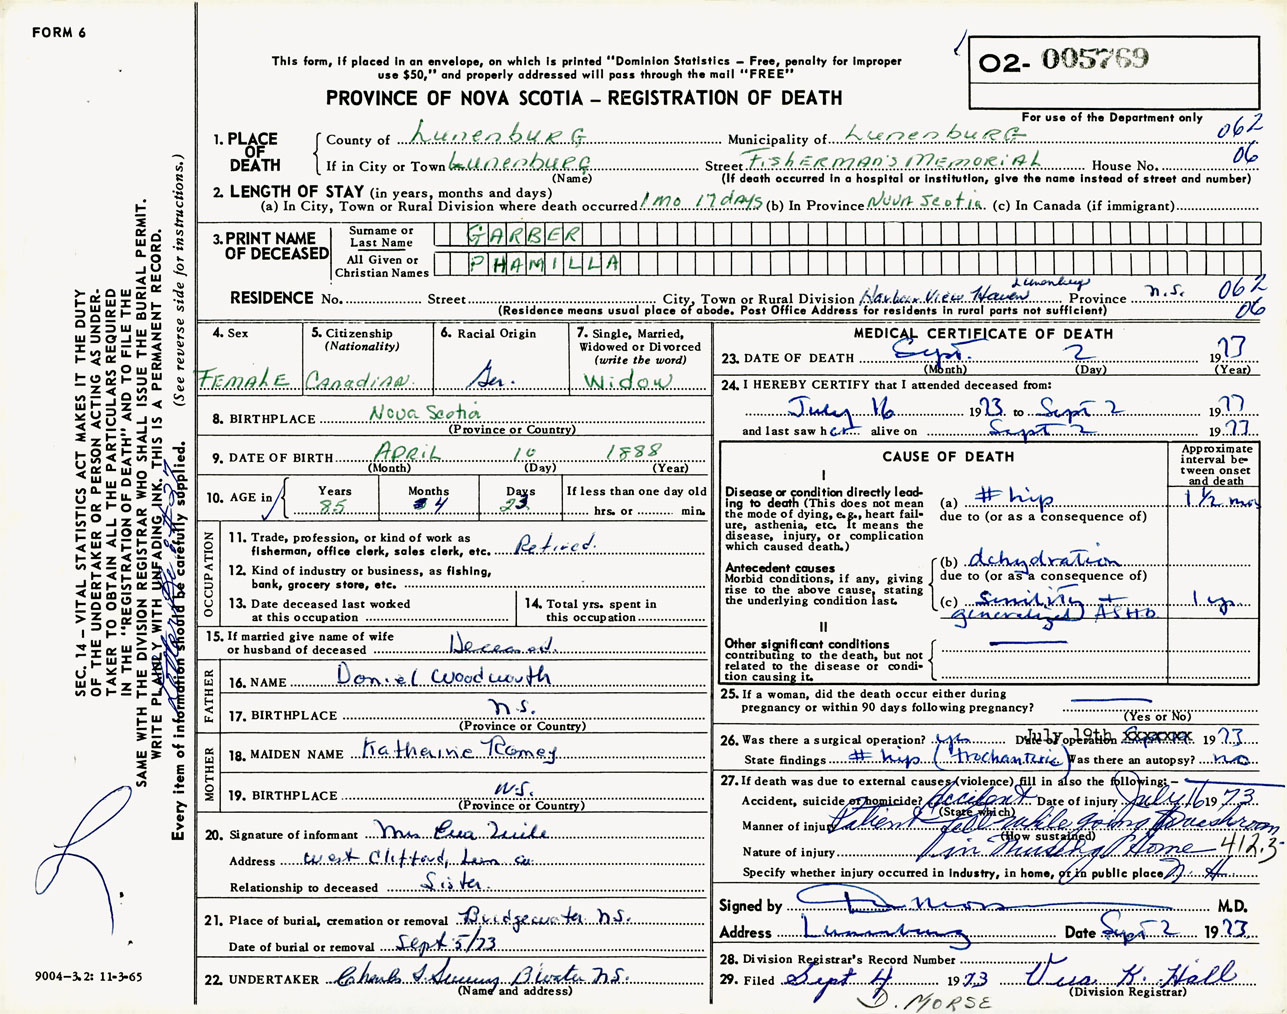 FORM 6
This form, if placed in an envelope, on which is printed "Dominion Statistics – Free, penalty for improper
use $50," and properly addressed will pass through the mail "FREE"
O2- 005769
For use of the Department only
PROVINCE OF NOVA SCOTIA – REGISTRATION OF DEATH
SEC. 14 – VITAL STATISTICS ACT MAKES IT THE DUTY
OF THE UNDERTAKER OR PERSON ACTING AS UNDER-
TAKER TO OBTAIN ALL THE PARTICULARS REQUIRED
IN THE "REGISTRATION OF DEATH" AND TO FILE THE
SAME WITH THE DIVISION REGISTRAR WHO SHALL ISSUE THE BURIAL PERMIT.
WRITE PLAINLY WITH UNFADING INK. THIS IS A PERMANENT RECORD.
Every item of information should be carefully supplied. (See reverse side for instructions.)
1. PLACE OF DEATH
County of Lunenburg Municipality of Lunenburg 062
If in City or Town Lunenburg Street Fisherman's Memorial House No. 06
(Name) (If death occurred in a hospital or institution, give the name instead of street and number)
2. LENGTH OF STAY (in years, months and days)
(a) In City, Town or Rural Division where death occurred 1 mo 17 days (b) In Province Nova Scotia (c) In Canada (if immigrant)
3. PRINT NAME OF DECEASED
Surname or Last Name GARBER
All Given or Christian Names PHAMILLA
RESIDENCE No. Street City, Town or Rural Division Harbour View Haven Lunenburg Province N.S. 062
(Residence means usual place of abode. Post Office Address for residents in rural parts not sufficient) 06
4. Sex
Female
5. Citizenship
(Nationality)
Canadian
6. Racial Origin
Ger.
7. Single, Married,
Widowed or Divorced
(write the word)
Widow
8. BIRTHPLACE Nova Scotia
(Province or Country)
9. DATE OF BIRTH APRIL 10 1888
(Month) (Day) (Year)
10. AGE in
Years 85
Months 4
Days 23
If less than one day old
hrs. or min.
OCCUPATION
11. Trade, profession, or kind of work as
fisherman, office clerk, sales clerk, etc. Retired.
12. Kind of industry or business, as fishing,
bank, grocery store, etc.
13. Date deceased last worked
at this occupation
14. Total yrs. spent in
this occupation
15. If married give name of wife
or husband of deceased Deceased
FATHER
16. NAME Daniel Woodworth
17. BIRTHPLACE N.S.
(Province or Country)
MOTHER
18. MAIDEN NAME Katharine Romey
19. BIRTHPLACE N.S.
(Province or Country)
20. Signature of informant Mrs Eva
Address West Clifford, Lun. Co.
Relationship to deceased Sister.
21. Place of burial, cremation or removal Bridgewater N.S.
Date of burial or removal Sept 5/73
22. UNDERTAKER Charles B'water N.S.
(Name and address)
MEDICAL CERTIFICATE OF DEATH
23. DATE OF DEATH Sept. 2 1973
(Month) (Day) (Year)
24. I HEREBY CERTIFY that I attended deceased from:
July 16 1973 to Sept 2 1973
and last saw her alive on Sept 2 1973
CAUSE OF DEATH
Approximate
interval be-
tween onset
and death
I
Disease or condition directly lead-
ing to death (This does not mean
the mode of dying, e.g., heart fail-
ure, asthenia, etc. It means the
disease, injury, or complication
which caused death.)
(a) # hip 1 ½ mos
due to (or as a consequence of)
Antecedent causes
Morbid conditions, if any, giving
rise to the above cause, stating
the underlying condition last.
(b) dehydration
due to (or as a consequence of)
(c) senility + 1 yr
generalized ASHD
II
Other significant conditions
contributing to the death, but not
related to the disease or condi-
tion causing it.
25. If a woman, did the death occur either during
pregnancy or within 90 days following pregnancy?
(Yes or No)
26. Was there a surgical operation? yes Date of operation July 19th 1973
State findings # hip (trochanteric) Was there an autopsy? no
27. If death was due to external causes (violence) fill in also the following: –
Accident, suicide or homicide? Accident Date of injury July 16 1973
(State which)
Manner of injury Patient fell while going to washroom
(How sustained)
Nature of injury in Nursing Home 412.3
Specify whether injury occurred in industry, in home, or in public place N. H.
Signed by D Morse M.D.
Address Lunenburg Date Sept 2 1973
28. Division Registrar's Record Number
29. Filed Sept 4 1973 Vera K. Hall
(Division Registrar)
D. MORSE
9004–3.2: 11-3-65